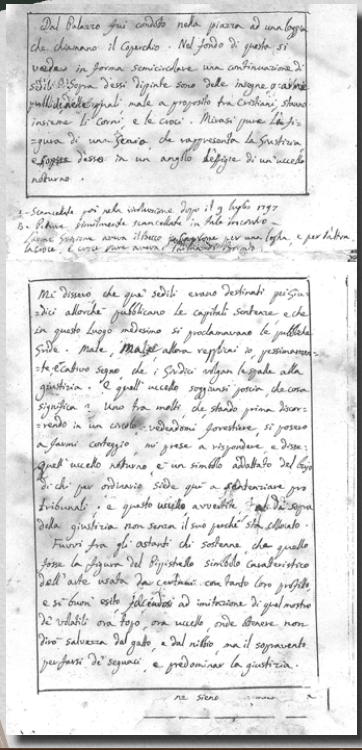 Dal Palazzo fui condoto nella piazza ad una loggia
che chiamano il Coperchio. Nel fondo di questa si
vede in forma semicircolare una continuazione di
sedili. Sopra d'essi dipinte sono delle insegne
quali male a proposito tra Cristiani, stanno
insieme li Corni, e le Croci. Mirasi pure la fi=
=gura di una Genio che rappresenta la Giustizia
e desso in un anglo l'efigie di un uccello
notturno.
A - Scancellate poi nella rivoluzione dopo il 9 luglio 1797
B - Pitture similmente scancellate in tale incontro -
per una loggia, e per l'altra
la Croce, e croce pure aveva
Mi dissero che que' sedili erano destinati pei Giu=
=dici allorchè pubblicano le capitali sentenze e che
in questo luogo medesimo si proclamavano le pubbliche
Gride. Male, Male allora replicai io, pessimamen=
=te, e cattivo segno, che i Giudici volgan le spalle alla
giustizia. E quell' uccello soggiunsi poscia che cosa
significa? Uno tra molti, che stando prima discor=
=rendo in un circolo vedendomi forestiere, si posero
a farmi corteggio, mi prese a rispondere, e disse:
quell' uccello notturno, è un simbolo addattato del
di chi per ordinario siede quì a sentenziare pro
tribunali; e questo uccello avvertite al di sopra
della giustizia non senza il suo perchè sta collocato.
Fuvvi fra gli astanti chi sostenne, che quello
fosse la figura del Pipistrello simbolo carateristico
dell' arte usata da certuni con tanto loro profitto,
e sì buon esito facendosi ad imitazione di quel mostro
de volatili ora topo, ora uccello, onde ottenere non
dirò salvezza dal gatto, e dal nibbio, ma il sopravento
per farsi de' seguaci, e predominar la giustizia.
ne sieno